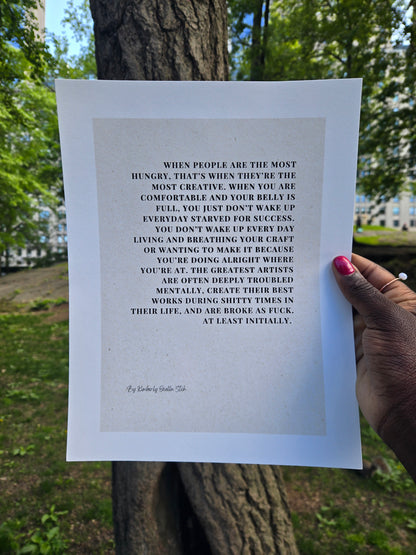 WHEN PEOPLE ARE THE MOST
HUNGRY, THAT'S WHEN THEY'RE THE
MOST CREATIVE. WHEN YOU ARE
COMFORTABLE AND YOUR BELLY IS
FULL, YOU JUST DON'T WAKE UP
EVERYDAY STARVED FOR SUCCESS.
YOU DON'T WAKE UP EVERY DAY
LIVING AND BREATHING YOUR CRAFT
OR WANTING TO MAKE IT BECAUSE
YOU'RE DOING ALRIGHT WHERE
YOU'RE AT. THE GREATEST ARTISTS
ARE OFTEN DEEPLY TROUBLED
MENTALLY, CREATE THEIR BEST
WORKS DURING SHITTY TIMES IN
THEIR LIFE, AND ARE BROKE AS FUCK.
AT LEAST INITIALLY.
By Kimberly